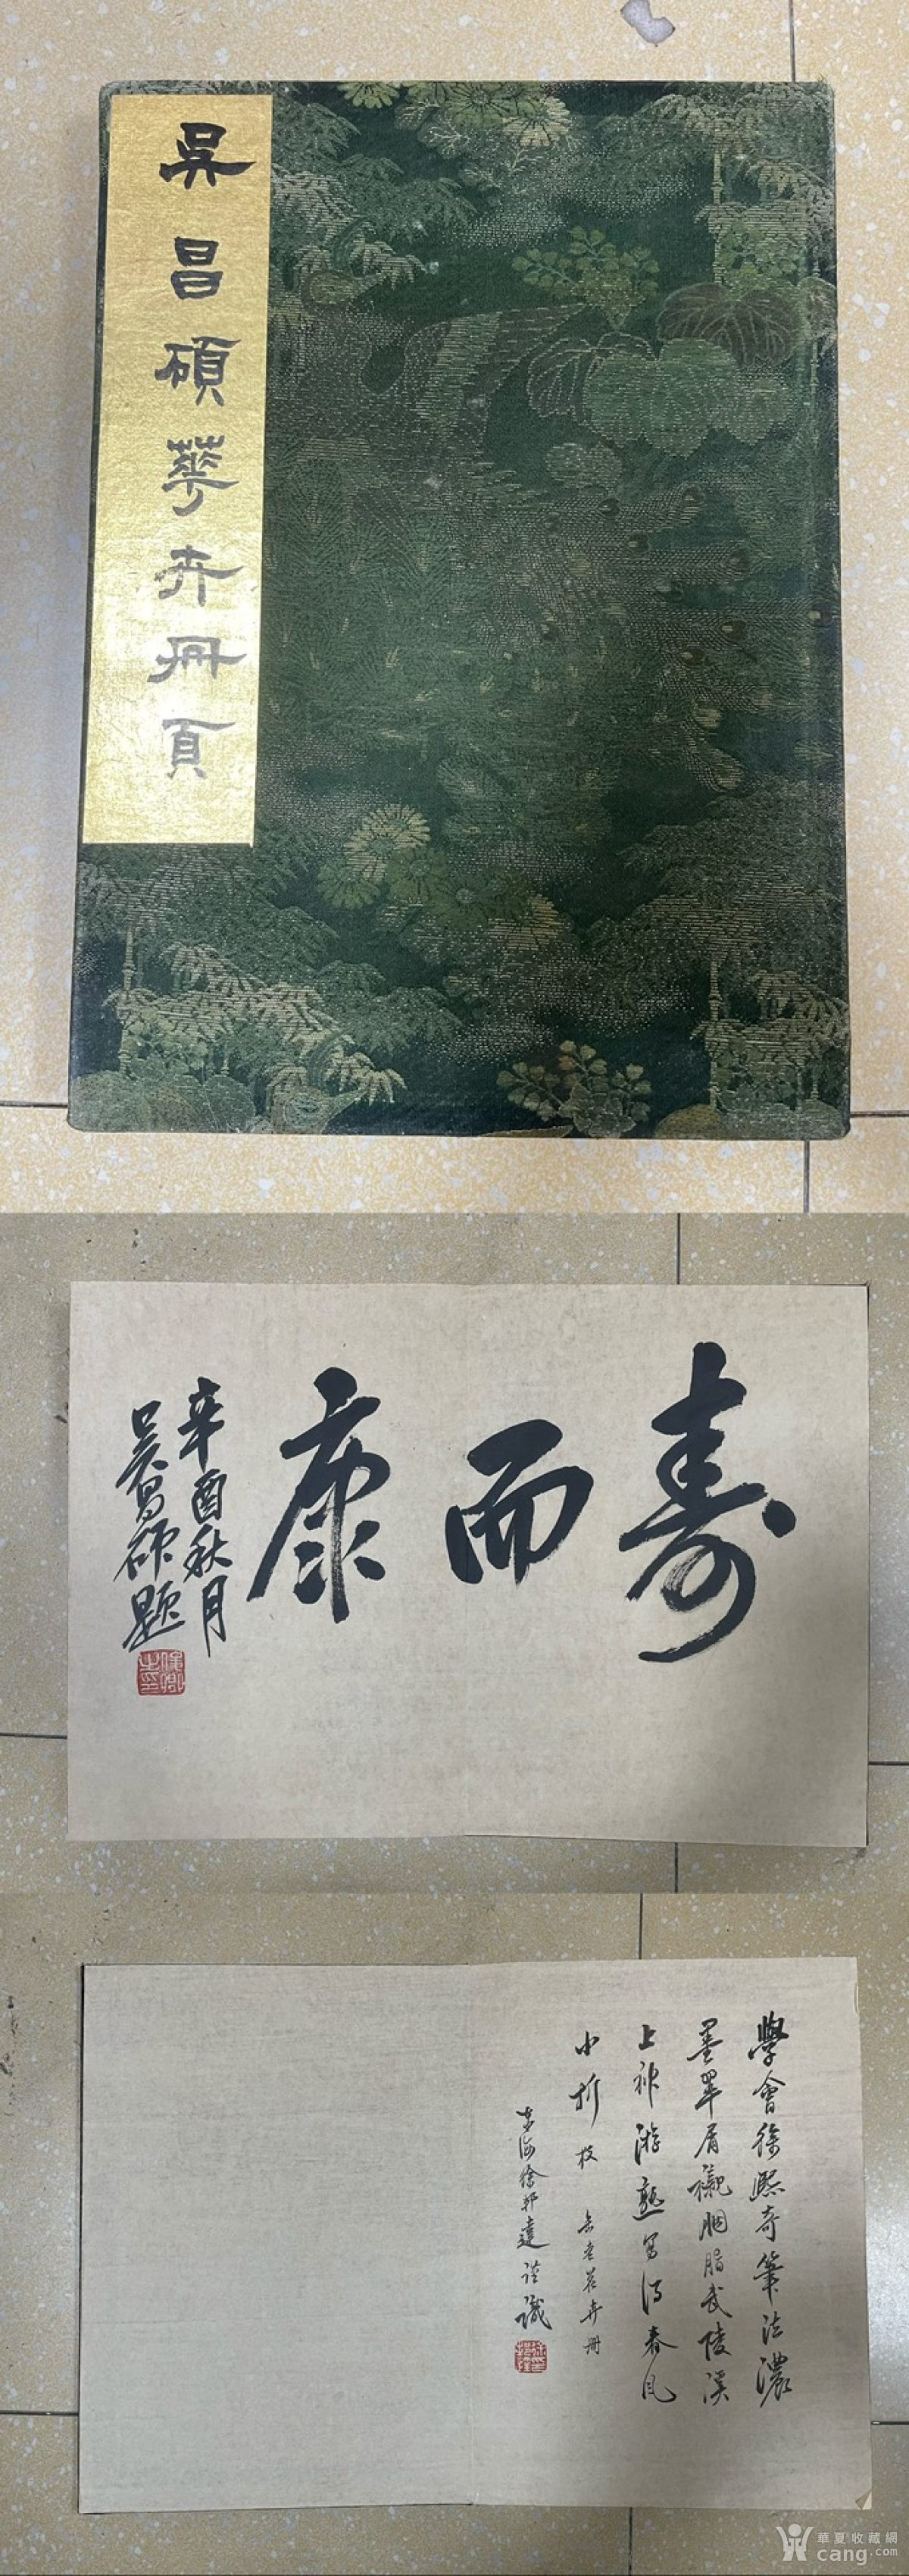 吳昌碩華卉冊頁
壽而康
辛酉秋月
吴昌碩題
學會徐熙奇筆法濃
墨單眉襯胭脂武陵溪
上神游熟寫得春風
小折枝 缶老花卉冊
東海徐邦達謹識
華夏收藏網
cang.com